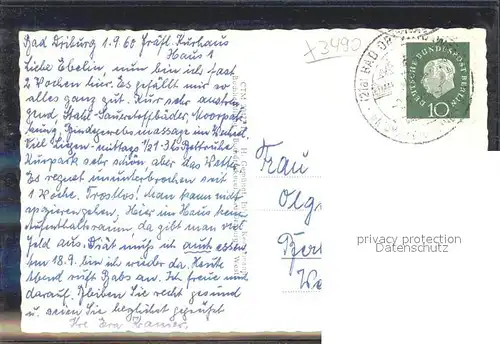 Bad Driburg 1.9.60 Gräfl. Kurhaus
Haus 1
Liebe Ebelin, nun bin ich fast
2 Wochen hier. Es gefällt mir so
alles ganz gut. Kur sehr anstren-
gend, Stahl-Sauerstoffbäder, Moorpak-
kung, Bindegewebsmassage im Wechsel.
Viel liegen. mittags 1/2 1-3 Uhr Bettruhe
Kurpark sehr schön aber das Wetter
Es regnet ununterbrochen seit
1 Woche. Trostlos! Man kann nicht
spazierengehen, Hier im Haus kein
Aufenthaltsraum da gibt man viel
Geld aus. Diät muß ich auch essen
Am 18.9. bin ich wieder da. Heute
Abend ruft Babs an. Ich freue mich
darauf. Bleiben Sie recht gesund
u. seien Sie herzlichst gegrüßt
Ihre Eva
x3490
BAD DRIBURG
DEUTSCHE BUNDESPOST BERLIN
10
Frau
Olg
Ber
privacy protection
Datenschutz